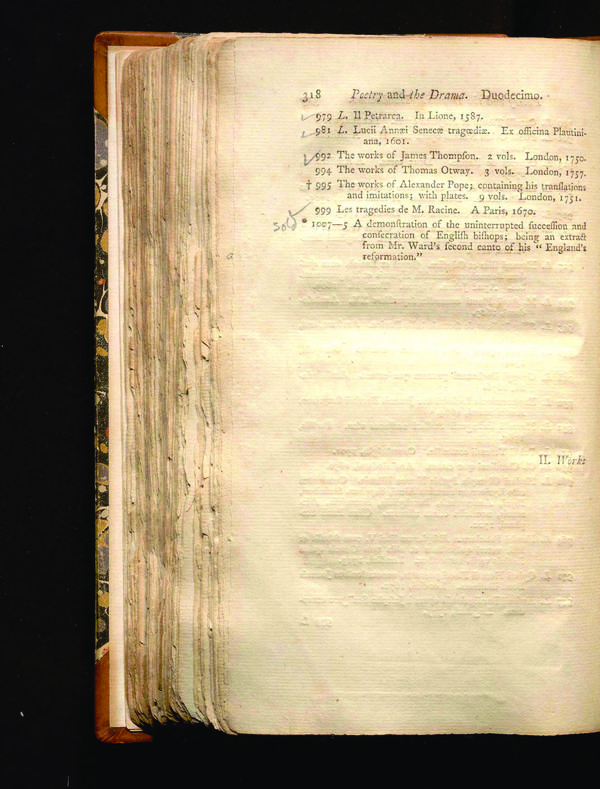 318 Poetry and the Drama. Duodecimo.
979 L. Il Petrarca. In Lione, 1587.
981 L. Lucii Annæi Senecæ tragœdiæ. Ex officina Plautini-
ana, 1601.
992 The works of James Thompſon. 2 vols. London, 1750.
994 The works of Thomas Otway. 3 vols. London, 1757.
† 995 The works of Alexander Pope; containing his tranſlations
and imitations; with plates. 9 vols. London, 1751.
999 Les tragedies de M. Racine. A Paris, 1670.
sold * 1007—5 A demonſtration of the uninterrupted ſucceſſion and
conſecration of Engliſh biſhops; being an extract
from Mr. Ward's ſecond canto of his " England's
reformation."
a
II. Works